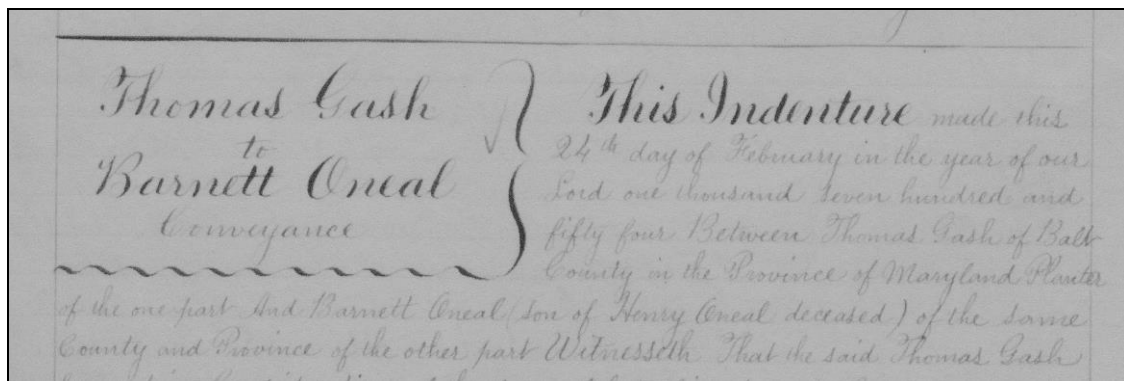 Thomas Gash
to
Barnett Oneal
Conveyance
This Indenture made this
24th day of February in the year of our
Lord one thousand seven hundred and
fifty four Between Thomas Gash of Balt
County in the Province of Maryland Planter
of the one part And Barnett Oneal (son of Henry Oneal deceased) of the same
County and Province of the other part Witnesseth That the said Thomas Gash